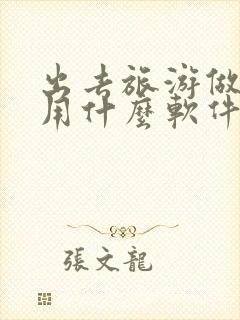 出去旅游做
用什麼軟件
張文龍